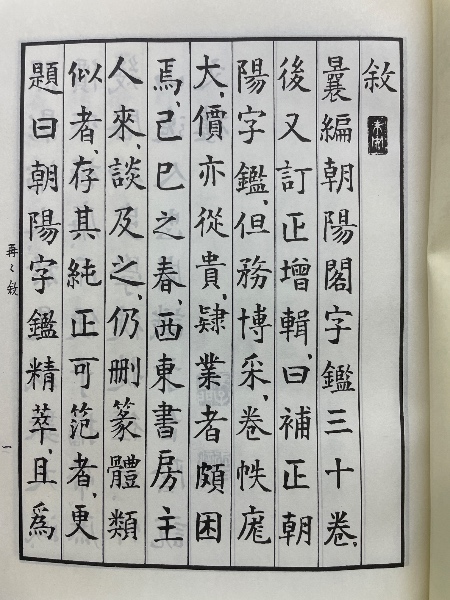 敘
曩編朝陽閣字鑑三十卷、
後又訂正增輯、曰補正朝
陽字鑑、但務博采、卷帙庬
大、價亦從貴、肄業者頗困
焉、己巳之春、西東書房主
人來、談及之、仍刪篆體類
似者、存其純正可范者、更
題曰朝陽字鑑精萃、且爲
再々敘
一